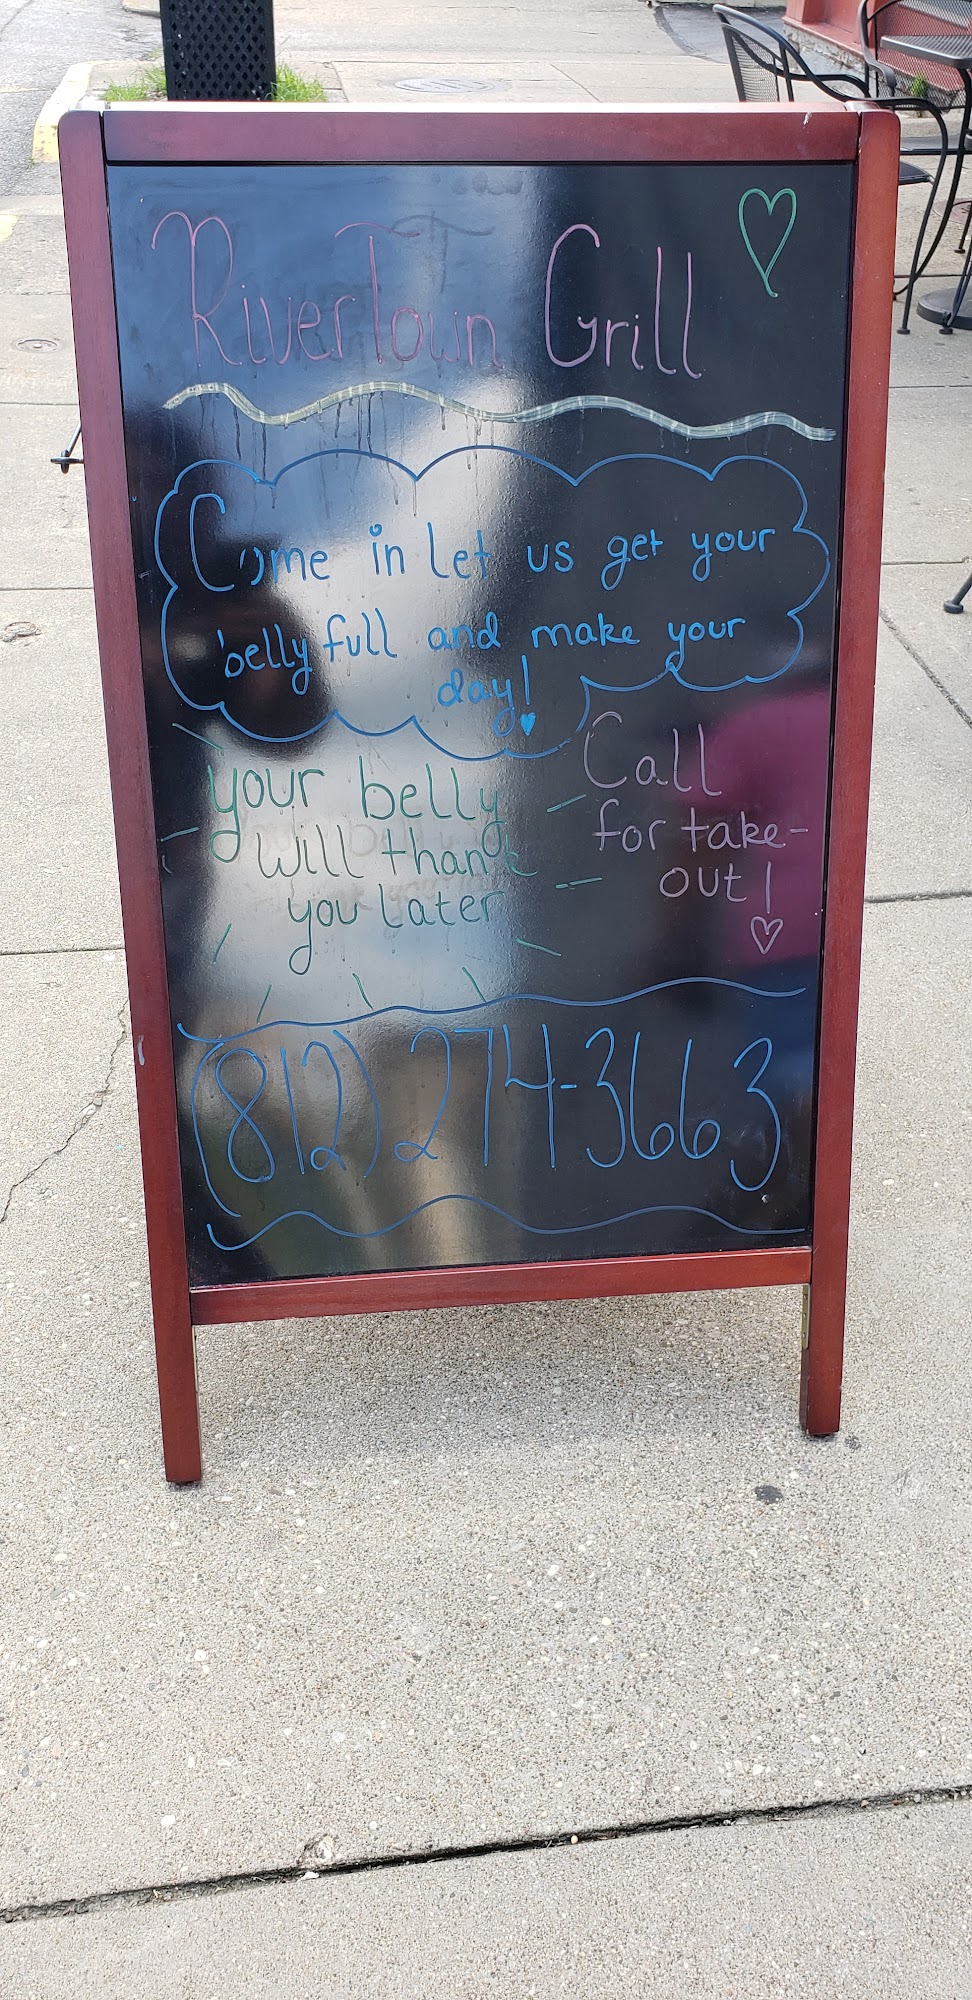 RiverTown Grill
Come in let us get your
belly full and make your
day!
your belly
will thank
you later
Call
for take-
out!
(812) 274-3663